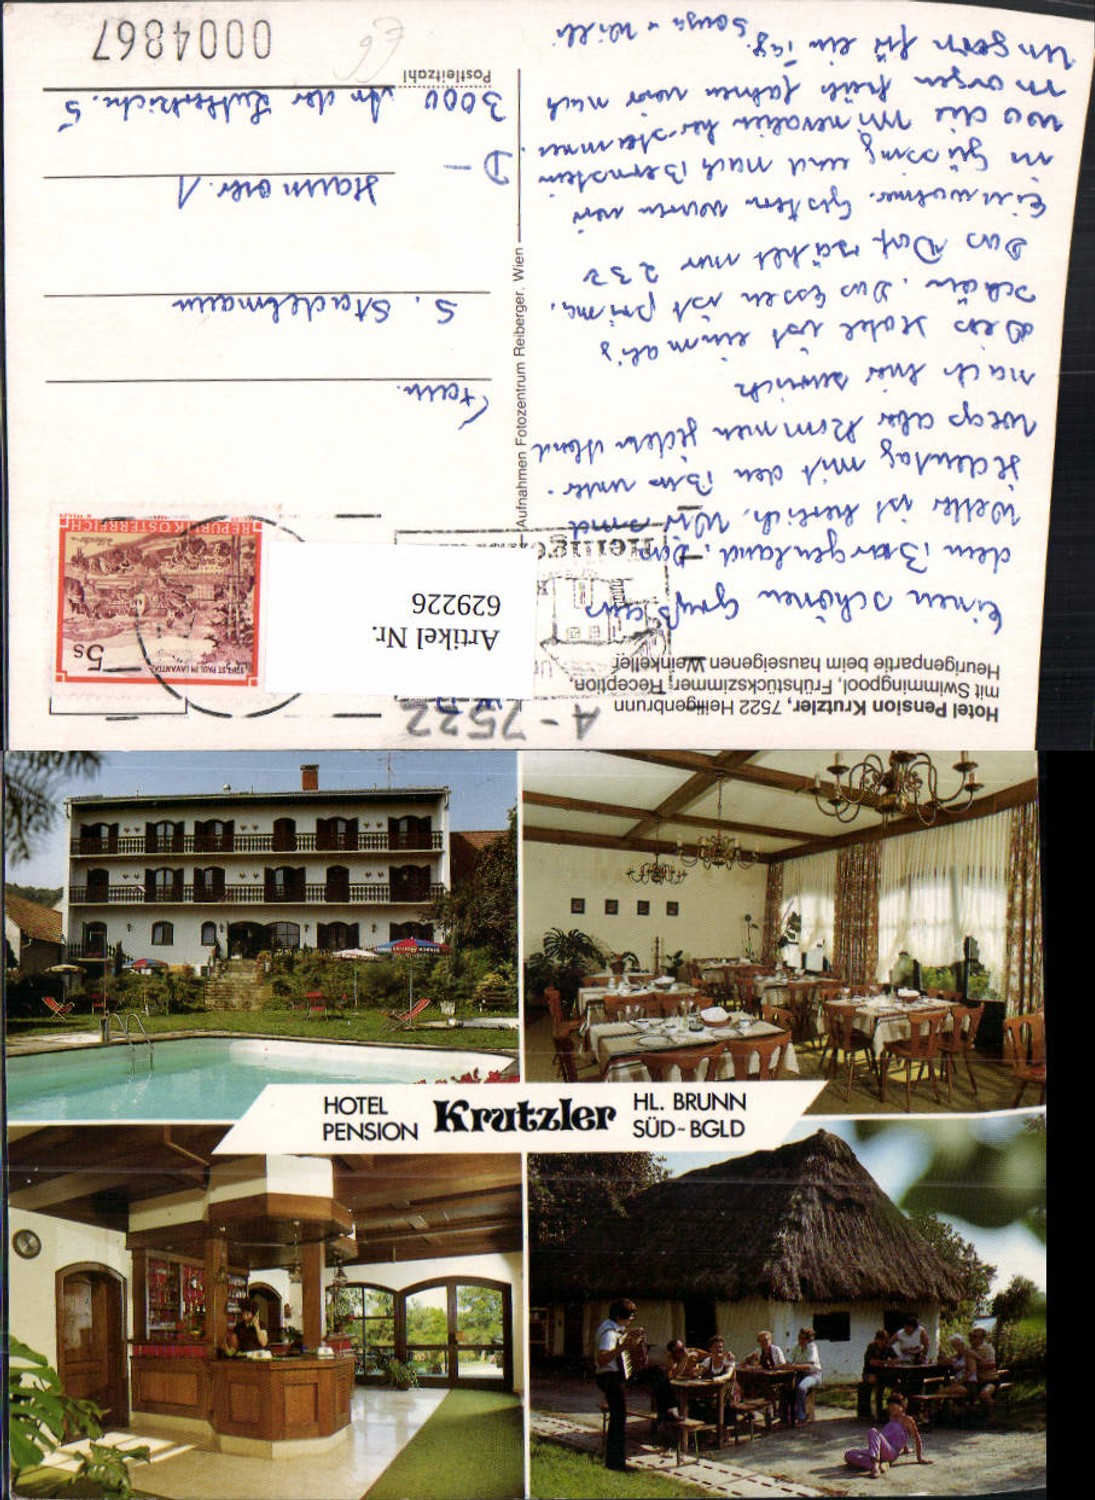 Hotel Pension Krutzler, 7522 Heiligenbrunn
mit Swimmingpool, Frühstückszimmer, Reception,
Heurigenpartie beim hauseigenen Weinkeller
Einen schönen Gruß aus
dem Burgenland. Das
Wetter ist herrlich. Wir sind
jeden Tag mit den Bus unter-
wegs aber kommen jeden Abend
nach hier zurück
Das Hotel ist einmalig
schön. Das Essen ist prima.
Das Dorf zählt nur 232
Einwohner. Gestern waren wir
in Güssing und nach Bernstein
wo die Mineralien herstammen.
Morgen früh fahren wir nach
Ungarn für ein Tag.
Willi
Aufnahmen Fotozentrum Reiberger, Wien
A-7522
Artikel Nr.
629226
5s
STIFT ST. PAUL IM LAVANTTAL
REPUBLIK ÖSTERREICH
Fam.
S. Stadelmann
Hannover 1
D-
3000 An der Lutherkirche 5
Postleitzahl
0004867
HOTEL
PENSION
Krutzler
HL. BRUNN
SÜD-BGLD